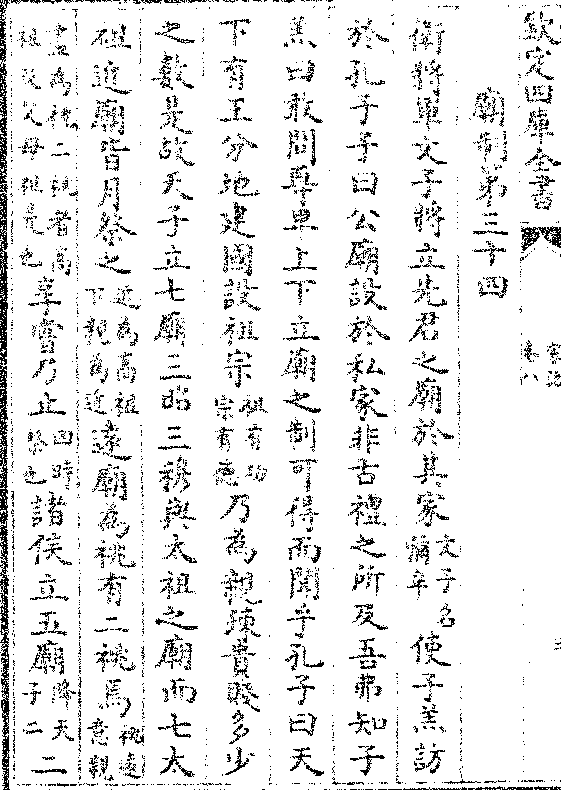 欽定四庫全書
廟制第三十四
衛將軍文子將立先君之廟於其家文子名彌牟使子羔訪
於孔子子曰公廟設於私家非古禮之所及吾弗知子
羔曰敢問尊卑上下立廟之制可得而聞乎孔子曰天
下有王分地建國設祖宗祖有功宗有德乃為親疎貴賤多少
之數是故天子立七廟三昭三穆與太祖之廟而七太
祖近廟皆月祭之近為高祖下親為近遠廟為祧有二祧焉祧遠意親
盡為祧二祧者高祖及父母祖是也享嘗乃止四時祭也諸侯立五廟降天子二二